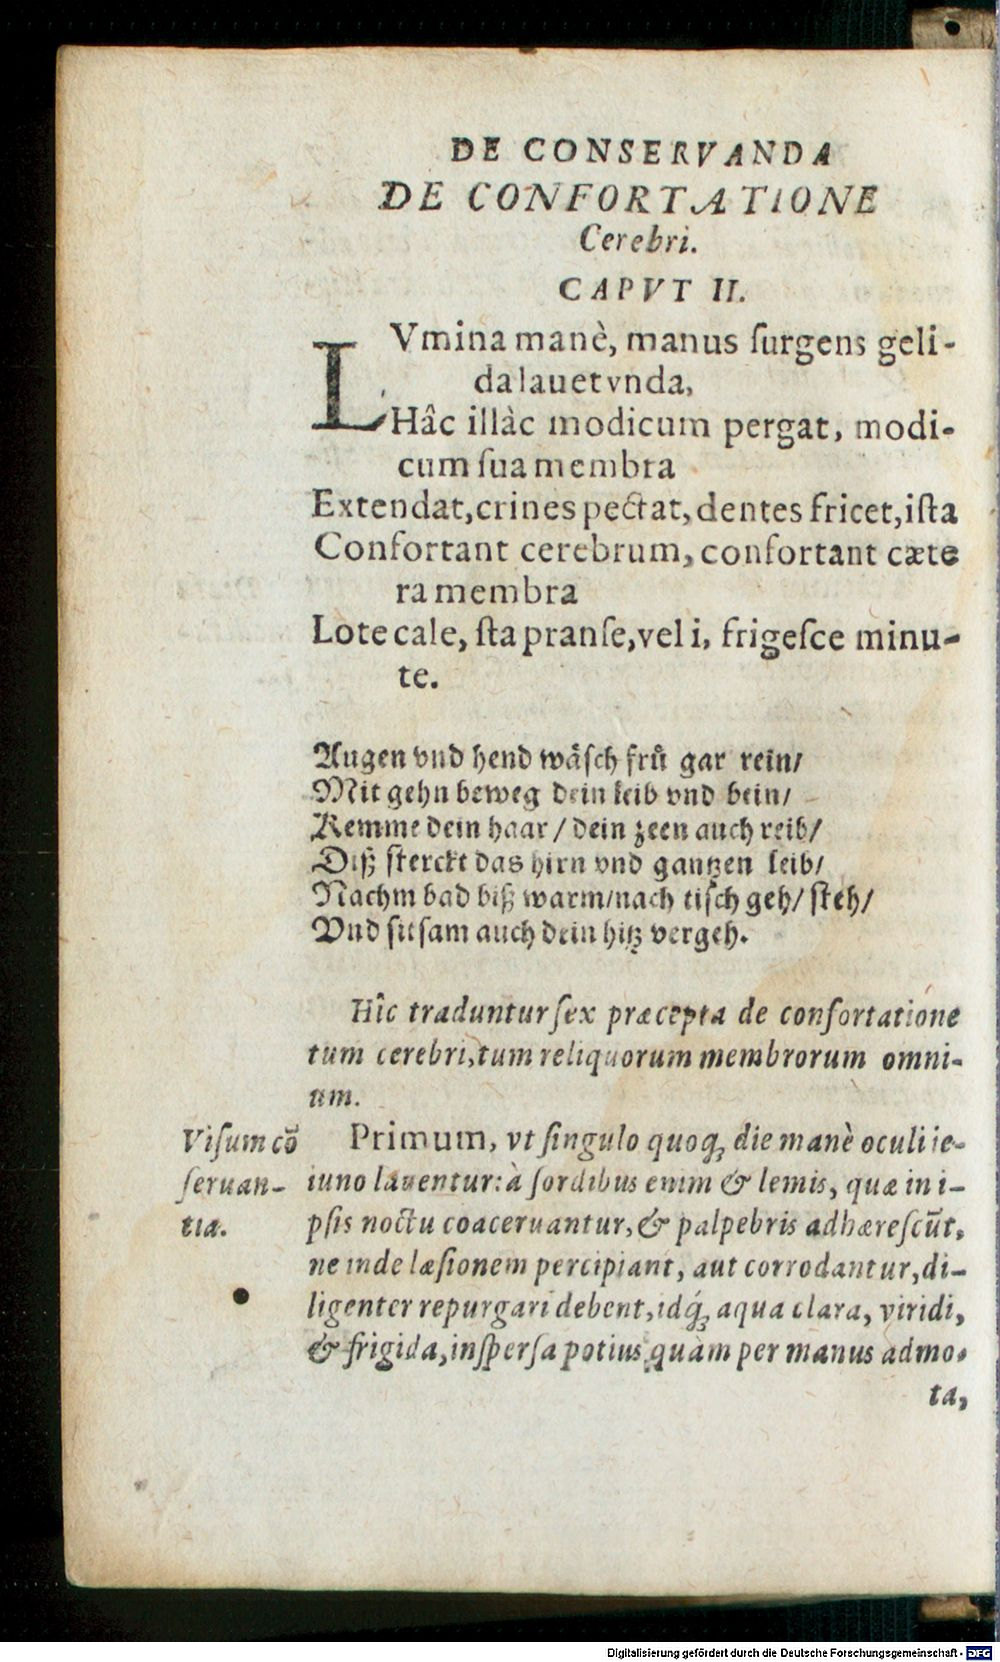 DE CONSERVANDA
DE CONFORTATIONE
Cerebri.
CAPVT II.
LVmina manè, manus ſurgens geli-
da lauet vnda,
Hâc illàc modicum pergat, modi-
cum ſua membra
Extendat, crines pectat, dentes fricet, iſta
Confortant cerebrum, confortant cæte
ra membra
Lote cale, ſta pranſe, vel i, frigeſce minu-
te.
Augen vnd hend wäſch fruͤ gar rein/
Mit gehn beweg dein leib vnd bein/
Kemme dein haar / dein zeen auch reib/
Diß ſterckt das hirn vnd gantzen leib/
Nachm bad biß warm/nach tiſch geh/ ſteh/
Vnd ſitſam auch dein hitz vergeh.
Hîc traduntur ſex præcepta de confortatione
tum cerebri, tum reliquorum membrorum omni-
um.
Viſum cõ
ſeruan-
tia.
Primum, vt ſingulo quoq; die manè oculi ie-
iuno lauentur: à ſordibus enim & lemis, quæ in i-
pſis noctu coaceruantur, & palpebris adhæreſcũt,
ne inde læſionem percipiant, aut corrodantur, di-
ligenter repurgari debent, idq́; aqua clara, viridi,
& frigida, inſperſa potius quàm per manus admo-
ta,
Digitalisierung gefördert durch die Deutsche Forschungsgemeinschaft - DFG